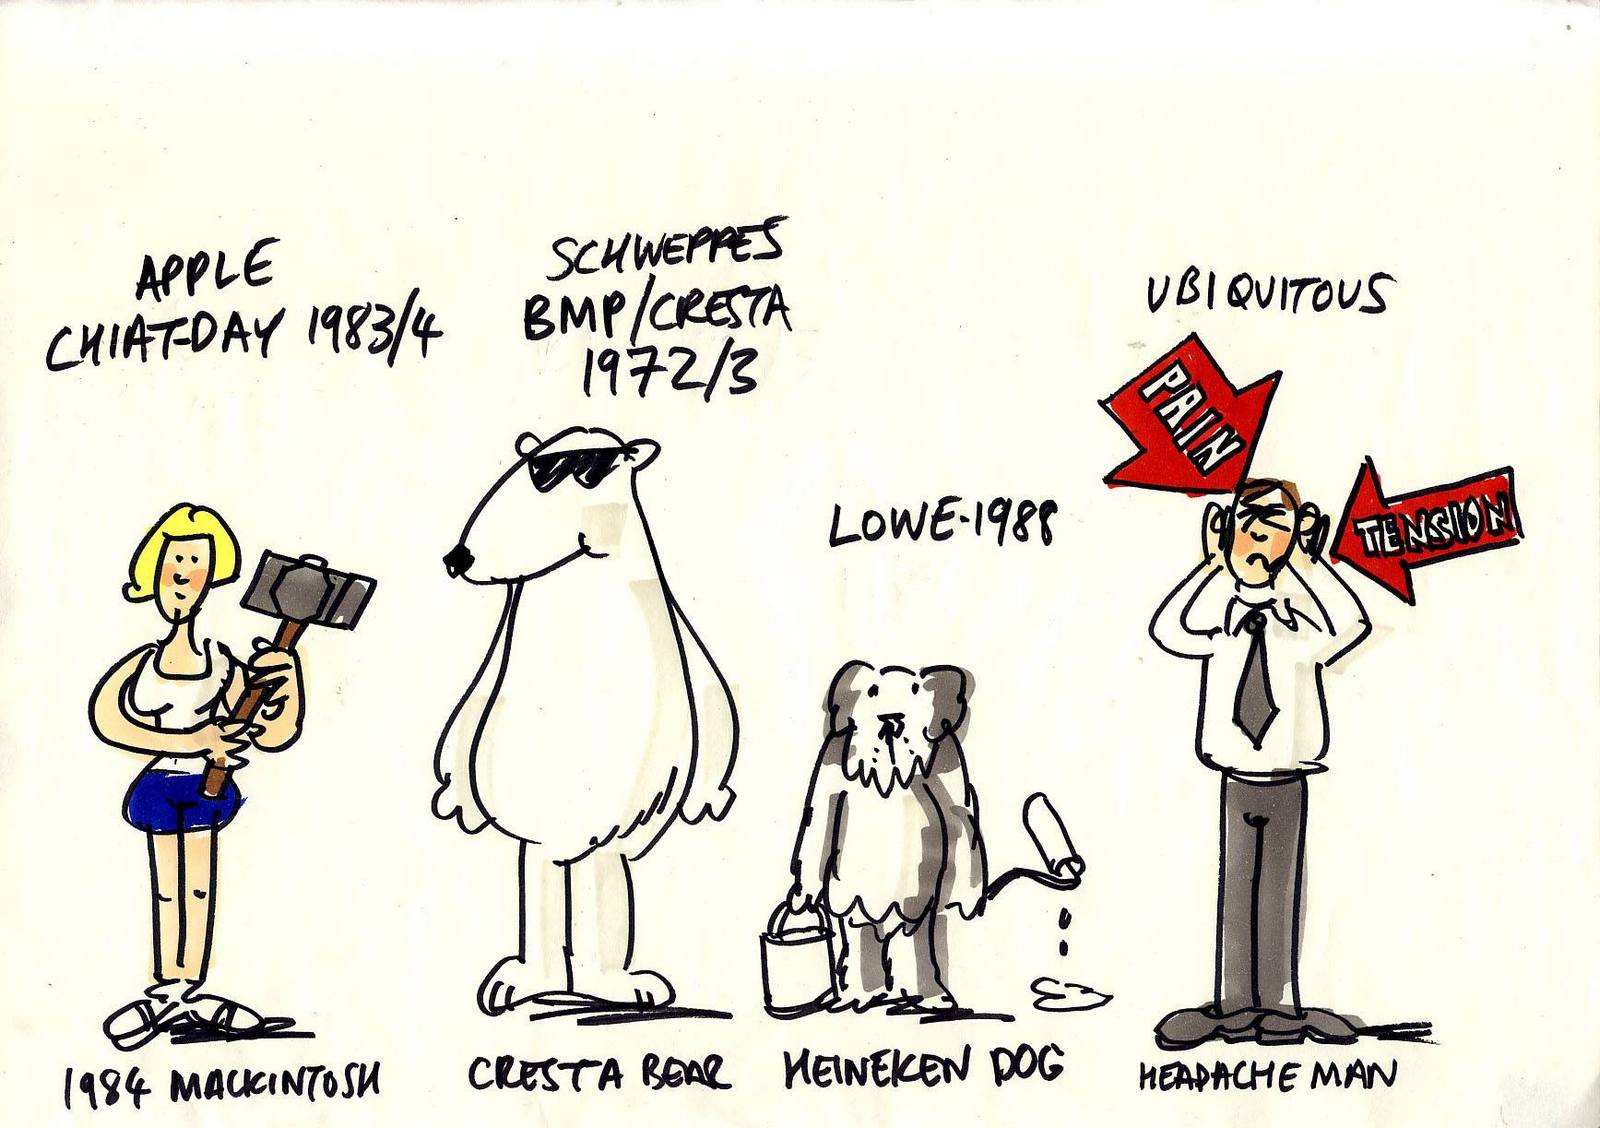 APPLE
CHIAT-DAY 1983/4
SCHWEPPES
BMP/CRESTA
1972/3
LOWE-1988
UBIQUITOUS
PAIN
TENSION
1984 MACKINTOSH
CRESTA BEAR
HEINEKEN DOG
HEADACHE MAN